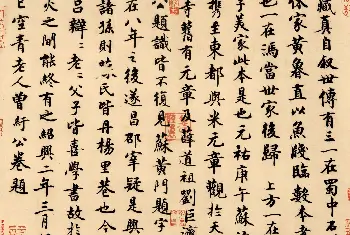 藏真自叙世傳有三一在蜀中石
休家黄魯直以魚牋臨數本者
也一在馮當世家後歸 上方一在
子美家此本是也元祐庚午蘇
攜至東都與米元章觀於天
寺舊有元章及薛道祖劉巨濟
公題識皆不復見蘇黄門題字
在八年之後遂昌邵宰疑是興
諸孫則蘇氏皆丹楊里巷也今
吕辯〻老〻父子皆喜學書故於
火之間能終有之紹興二年三月
巳空青老人曾紆公卷題